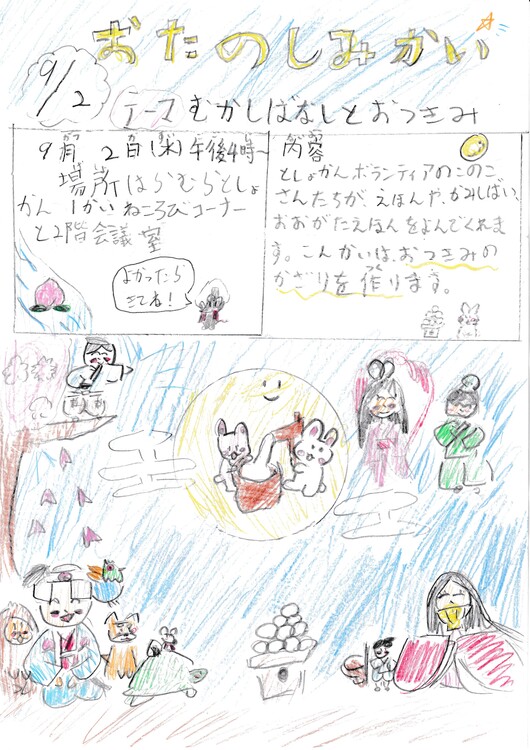 おたのしみかい
9/2
テース むかしばなしとおつきみ
9月がつ 2日(木)午後4時～
場所はらむらとしょ
かん 1かいねころびコーナー
と2階会議室
よかったら
きてね！
内容
としょかんボランティアのこのご
さんたちが、えほんや、かみしばい、
おおがたえほんをよんでくれま
す。こんかいは、おつきみの
かざりを作ります。